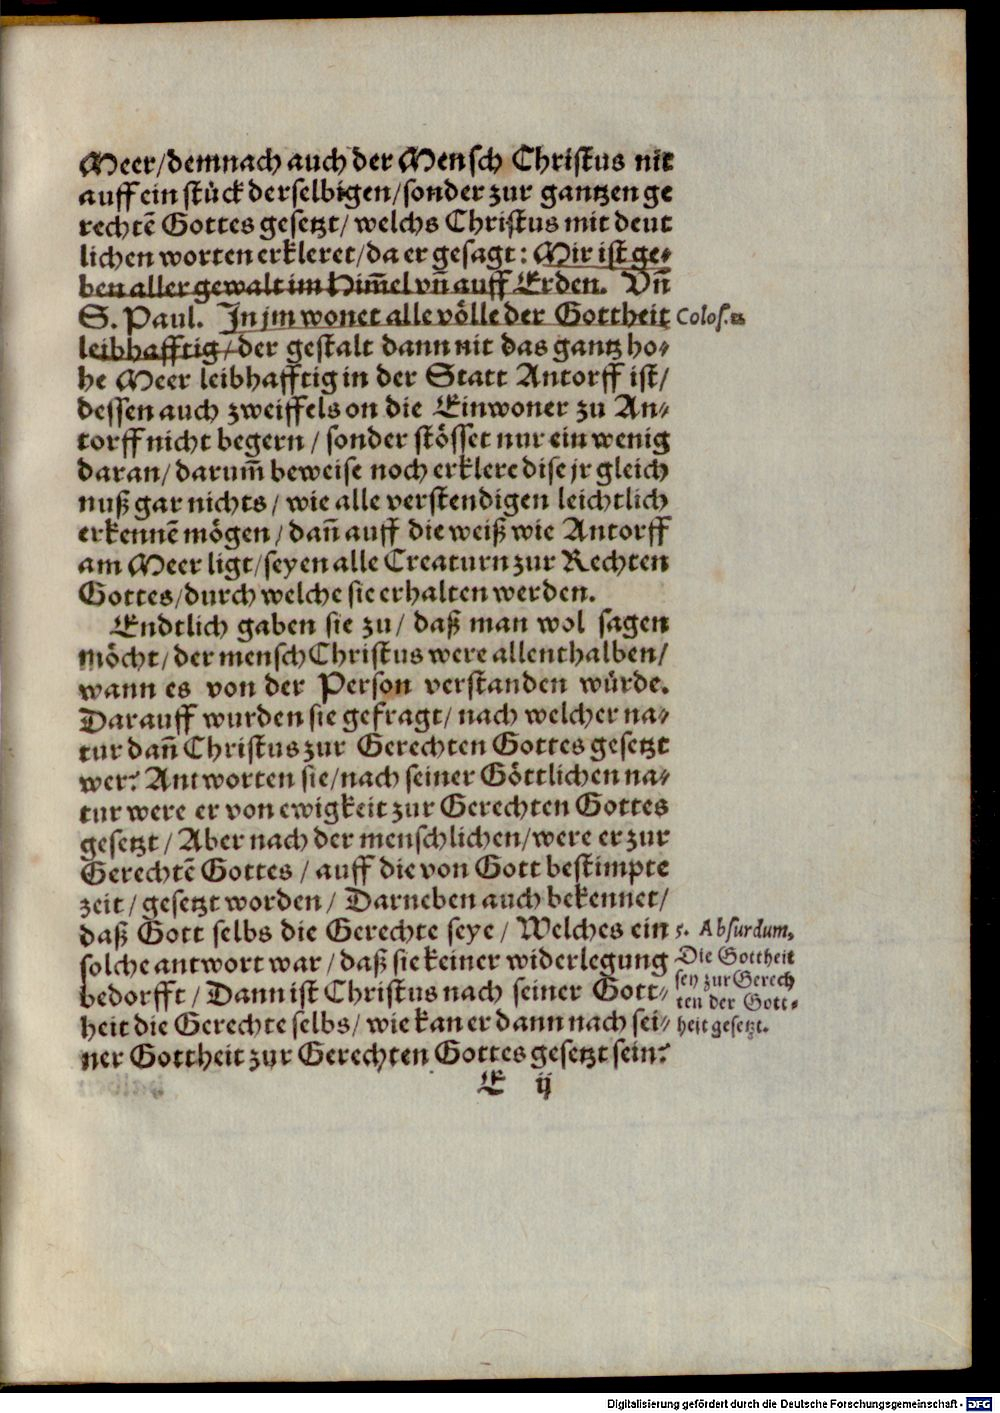 Meer/demnach auch der Mensch Christus nit
auff ein stück derselbigen/sonder zur gantzen ge
rechtē Gottes gesetzt/ welchs Christus mit deut
lichen worten erkleret/da er gesagt: Mir ist ge-
ben aller gewalt im Him̄el vn̄ auff Erden. Vn̄
S. Paul. In jm wonet alle völle der Gottheit
Colos.
leibhafftig/der gestalt dann nit das gantz ho-
he Meer leibhafftig in der Statt Antorff ist/
dessen auch zweiffels on die Einwoner zu An-
torff nicht begern/ sonder stösset nur ein wenig
daran/ darum̄ beweise noch erklere dise jr gleich
nuß gar nichts/ wie alle verstendigen leichtlich
erkennē mögen/ dan̄ auff die weiß wie Antorff
am Meer ligt/seyen alle Creaturn zur Rechten
Gottes/durch welche sie erhalten werden.
Endtlich gaben sie zu/ daß man wol sagen
möcht/ der mensch Christus were allenthalben/
wann es von der Person verstanden würde.
Darauff wurden sie gefragt/ nach welcher na-
tur dan̄ Christus zur Gerechten Gottes gesetzt
wer? Antworten sie/nach seiner Göttlichen na-
tur were er von ewigkeit zur Gerechten Gottes
gesetzt/ Aber nach der menschlichen/were er zur
Gerechtē Gottes/ auff die von Gott bestimpte
zeit/ gesetzt worden/ Darneben auch bekennet/
daß Gott selbs die Gerechte seye/ Welches ein
solche antwort war/ daß sie keiner widerlegung
bedorfft/ Dann ist Christus nach seiner Gott-
heit die Gerechte selbs/ wie kan er dann nach sei-
ner Gottheit zur Gerechten Gottes gesetzt sein?
5. Absurdum,
Die Gottheit
sey zur Gerech
ten der Gott-
heit gesetzt.
E ij
Digitalisierung gefördert durch die Deutsche Forschungsgemeinschaft - DFG